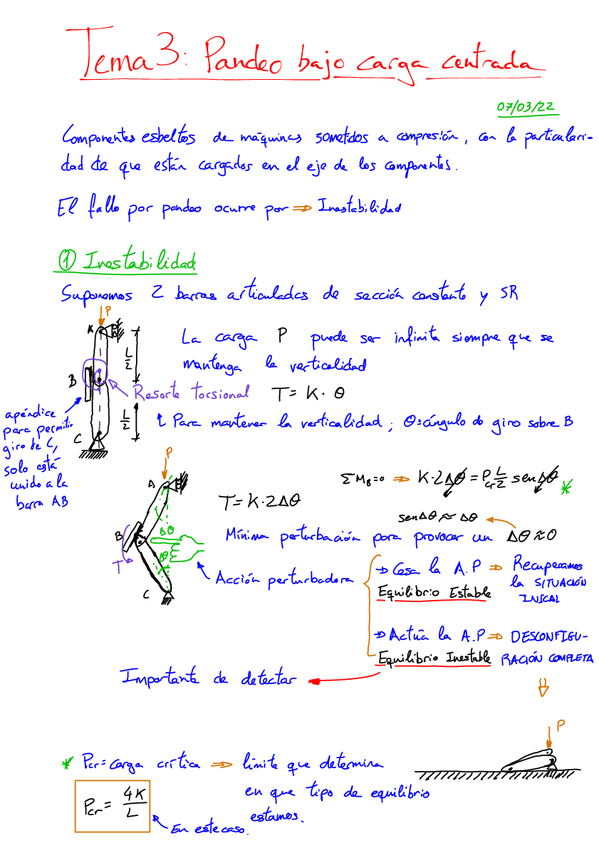 Tema 3: Pandeo bajo carga centrada
07/03/22
Componentes esbeltos de máquinas sometidos a compresión, con la particulari-
dad de que están cargados en el eje de los componentes.
El fallo por pandeo ocurre por ⇒ Inestabilidad
① Inestabilidad
Suponemos 2 barras articuladas de sección constante y SR
P
A
L/2
B
L/2
C
La carga P puede ser infinita siempre que se
mantenga la verticalidad
Resorte torsional T = K · θ
Para mantener la verticalidad ; θ: ángulo de giro sobre B
apéndice
para permitir
giro de C,
solo está
unido a la
barra AB
P
A
B
Δθ
θ
T
C
T = K · 2Δθ
ΣM_B=0 ⇒ K · 2Δθ = Pcr L/2 sen Δθ *
sen Δθ ≈ Δθ
Mínima perturbación para provocar un Δθ ≈ 0
Acción perturbadora
⇒ Cesa la A.P ⇒ Recuperamos
la SITUACIÓN
INICAL
Equilibrio Estable
⇒ Actúa la A.P ⇒ DESCONFIGU-
RACIÓN COMPLETA
Equilibrio Inestable
Importante de detectar
P
* Pcr = carga crítica ⇒ límite que determina
en que tipo de equilibrio
estamos.
Pcr = 4K/L
En este caso.